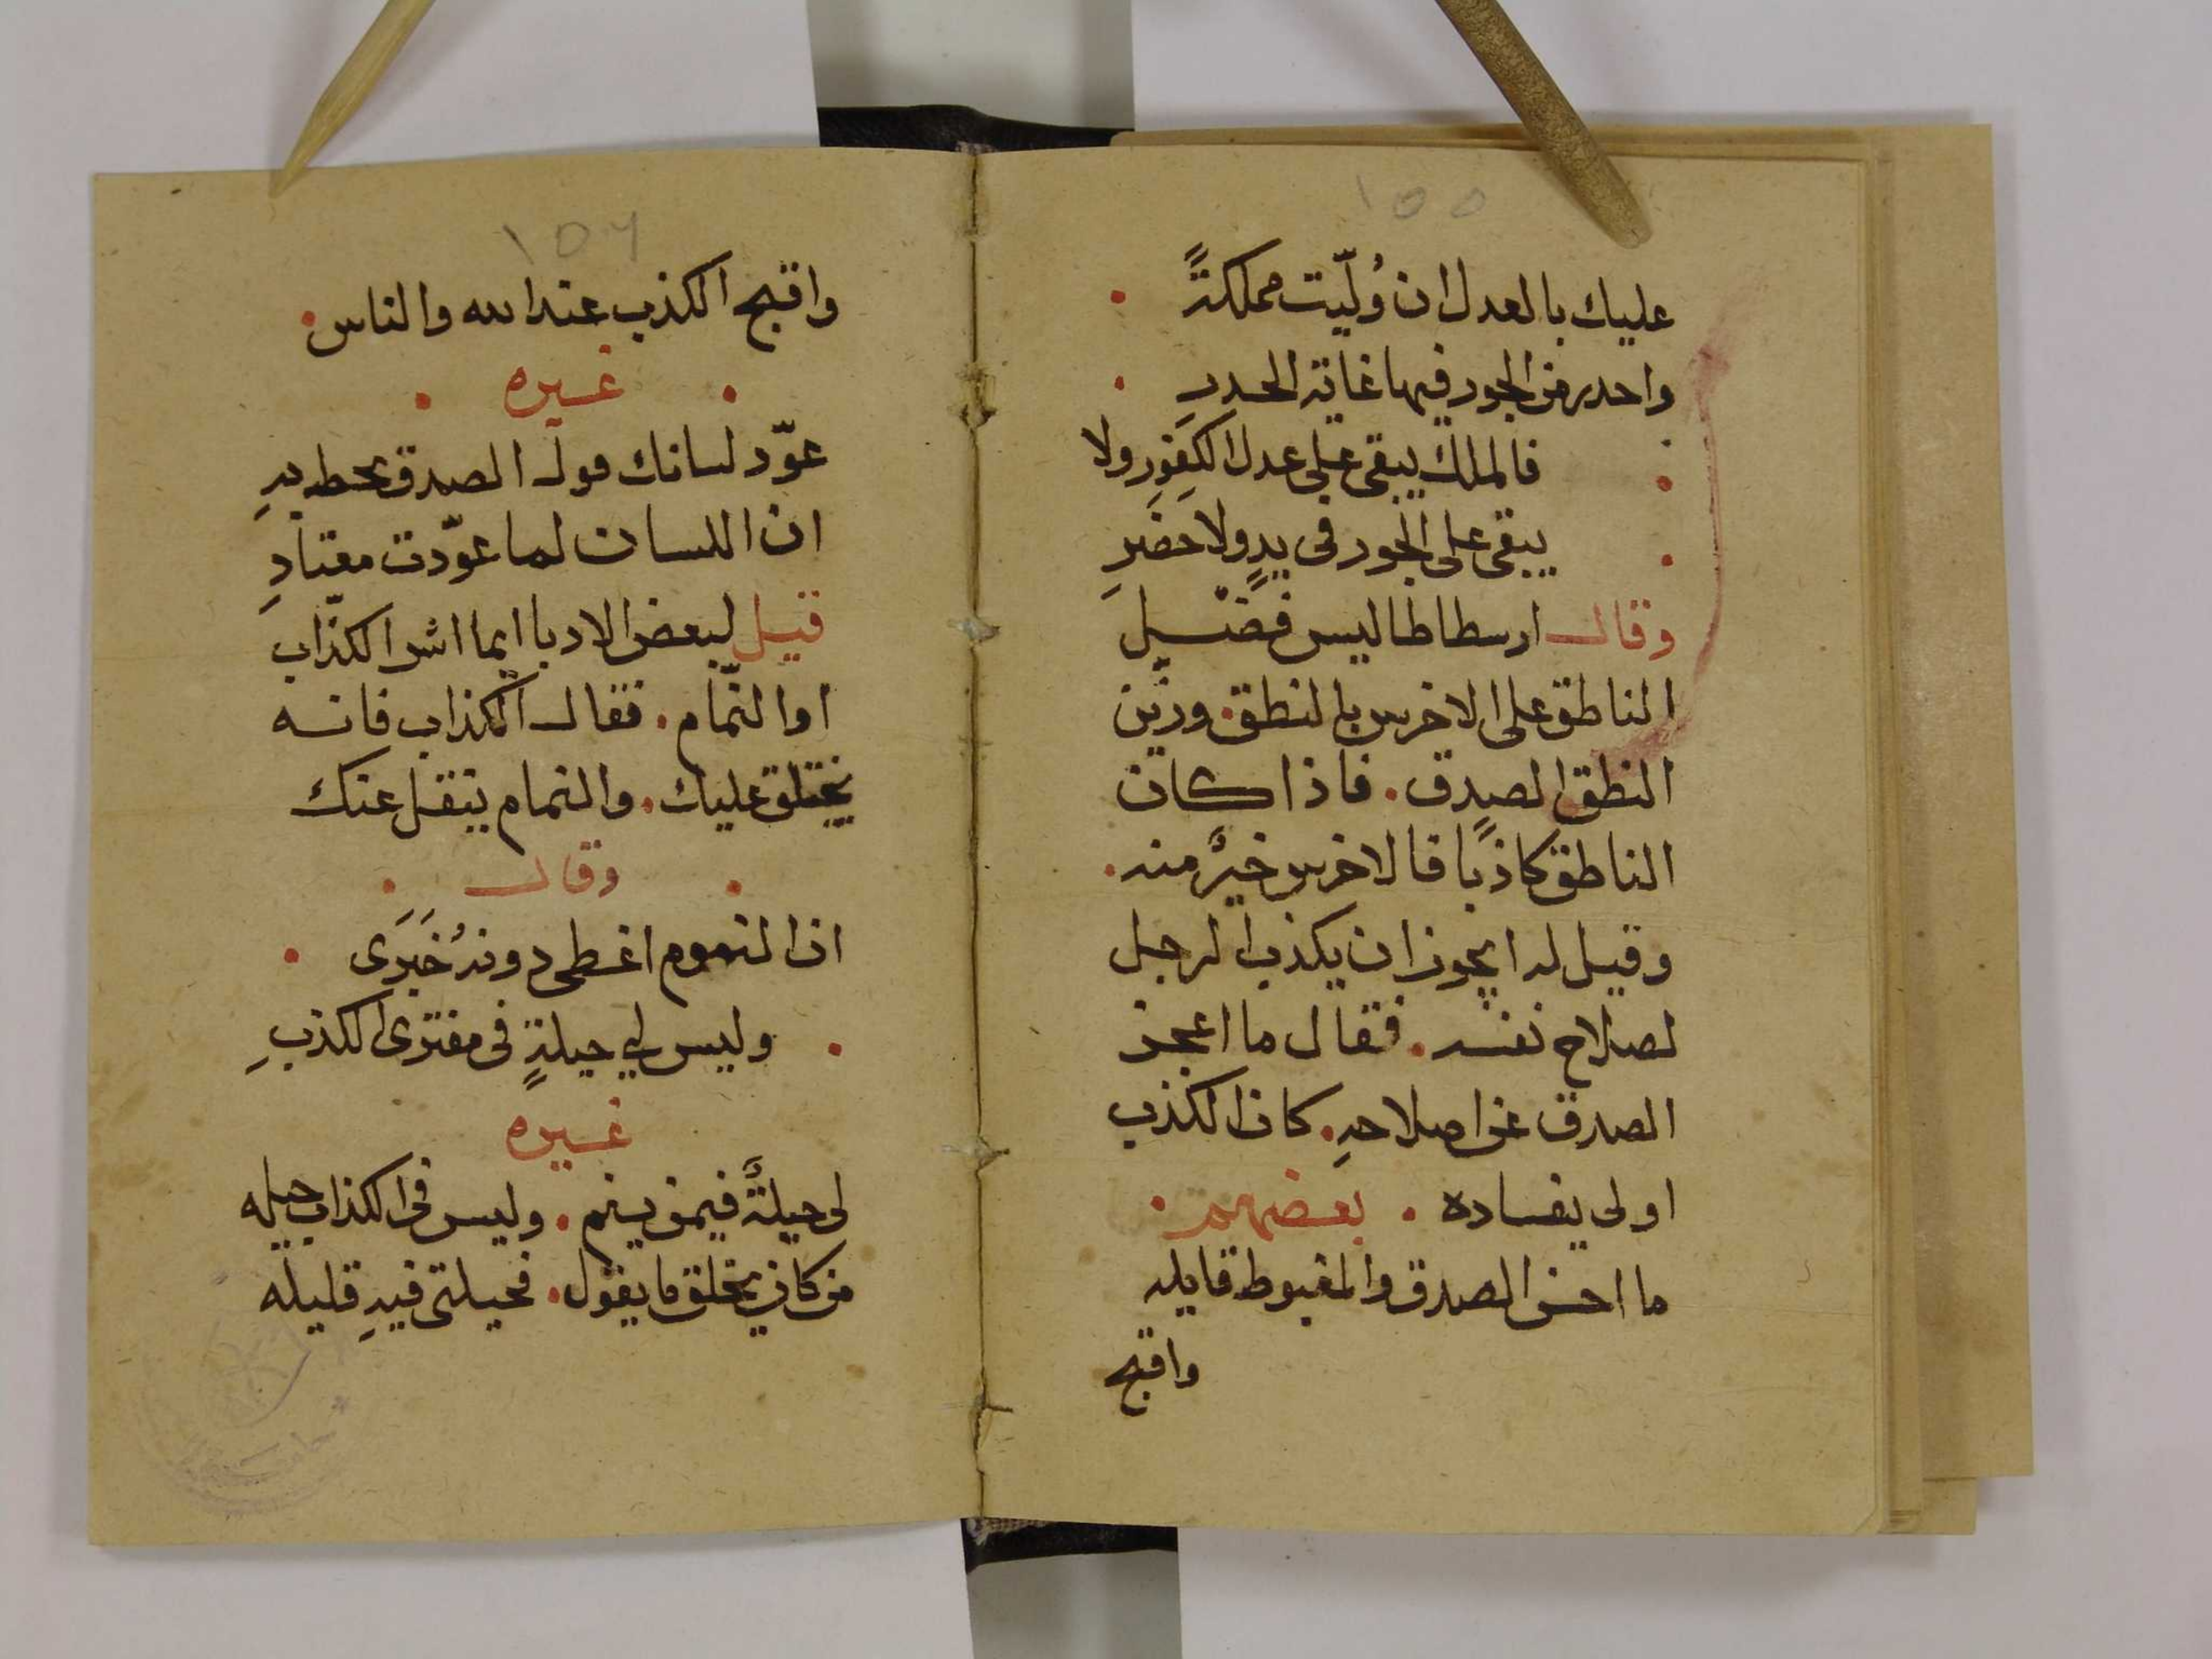 ١٥٥
عليك بالعدل ان وُلّيت مملكةً
واحدر من الجور فيها غاية الحدرِ
فالملك يبقى على عدل الكفور ولا
يبقى على الجور فى بدوٍ ولا حضرِ
وقال ارسطاطاليس فضيل
الناطق على الاخرس بالنطق وزين
النطق الصدق. فاذا كان
الناطق كاذبًا فالاخرس خيرٌ منه.
وقيل له ايجوز ان يكذب الرجل
لصلاح نفسه. فقال ما اعجز
الصدق عن اصلاحهِ. كان الكذب
اولى بفساده. بعضهم.
ما احسن الصدق والمغبوط قايله
واقبح
١٥٦
واقبح الكذب عند الله والناس.
غيره
عوّد لسانك قول الصدق تحظ بهِ
ان اللسان لما عوّدت معتادِ
قيل لبعض الادبا ايما اشر الكذّاب
او النّمام. فقال الكذاب فانه
يختلق عليك. والنمام ينقل عنك
وقال
ان النموم اغطى دونه خَبَرَى
وليس لي حيلةٍ فى مفترى الكذبِ
غيره
لى حيلةٌ فيمن ينم. وليس فى الكذاب حيله
من كان يخلق ما يقول. فحيلتى فيهِ قليله